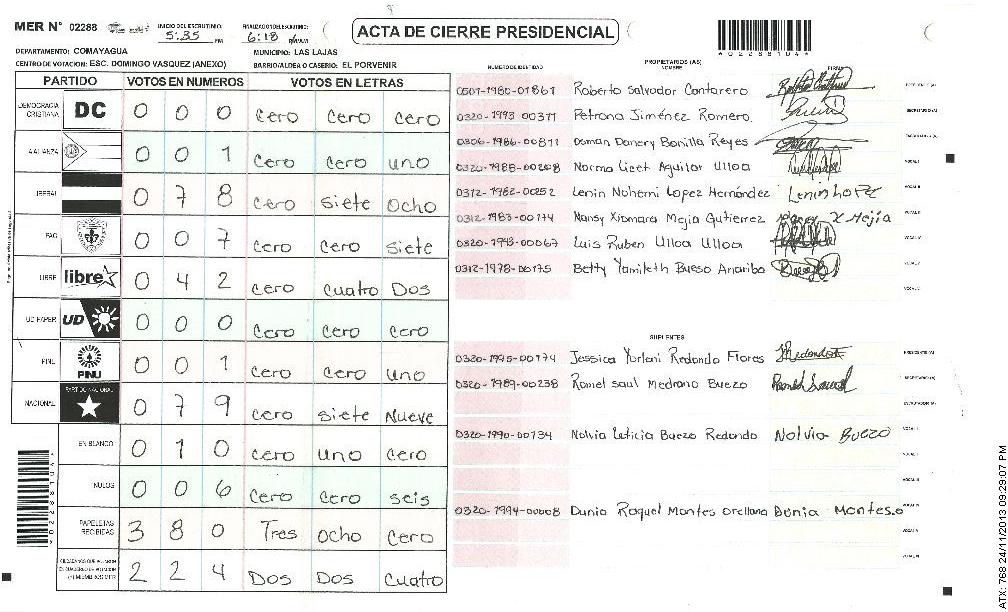 MER N° 02288
INICIO DEL ESCRUTINIO: 5:35 PM
FINALIZACION ESCRUTINIO: 6:18
ACTA DE CIERRE PRESIDENCIAL
*02288104*
DEPARTAMENTO: COMAYAGUA
MUNICIPIO: LAS LAJAS
CENTRO DE VOTACION: ESC. DOMINGO VASQUEZ (ANEXO)
BARRIO/ALDEA O CASERIO: EL PORVENIR
PARTIDO VOTOS EN NUMEROS VOTOS EN LETRAS
DEMOCRACIA CRISTIANA DC 0 0 0 Cero Cero Cero
ALIANZA 0 0 1 Cero Cero uno
LIBERAL 0 7 8 Cero siete ocho
PAC 0 0 7 Cero Cero siete
LIBRE libre 0 4 2 Cero cuatro Dos
UD FAPER UD 0 0 0 Cero Cero Cero
PINU PINU 0 0 1 Cero Cero uno
NACIONAL PARTIDO NACIONAL 0 7 9 Cero siete Nueve
EN BLANCO 0 1 0 Cero uno Cero
NULOS 0 0 6 Cero Cero seis
PAPELETAS RECIBIDAS 3 8 0 Tres ocho Cero
2 2 4 Dos Dos cuatro
PROPIETARIOS (AS)
NUMERO DE IDENTIDAD NOMBRE FIRMA
0501-1980-01861 Roberto Salvador Cantarero
0320-1993-00371 Petrona Jiménez Romero
0306-1986-00811 Osman Danery Bonilla Reyes
0320-1988-00208 Norma Licet Aguilar Ulloa
0312-1982-00252 Lenin Nohemi Lopez Hernández
0312-1983-00174 Nansy Xiomara Mejia Gutierrez
0320-1993-00067 Luis Ruben Ulloa Ulloa
0312-1978-00175 Betty Yamileth Bueso Anariba
SUPLENTES
0320-1995-00174 Jessica Yorleni Redondo Flores
0320-1989-00238 Romel Saul Medrano Buezo
0320-1990-00734 Nolvia Leticia Buezo Redondo Nolvia Buezo
0320-1994-00008 Dunia Raquel Montes Orellana Dunia Montes.o
ATX: 768 24/11/2013 09:29:07 PM